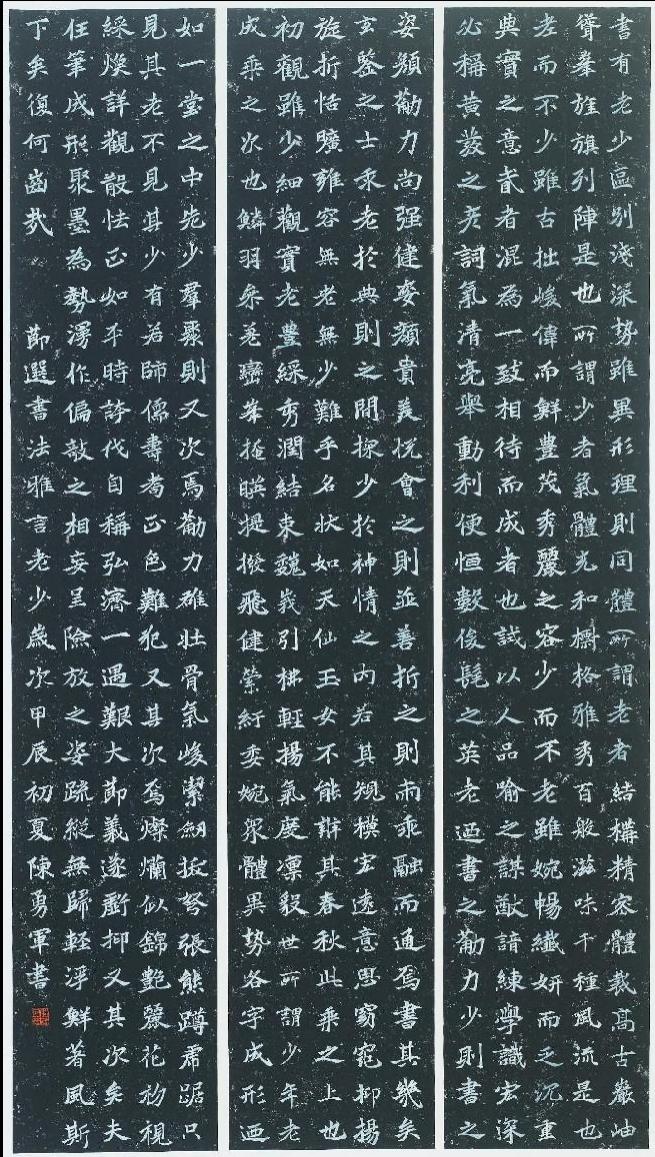 書有老少區別淺深勢雖異形理則同體所謂老者結構精密體裁高古巖岫
聳峯旌旗列陣是也所謂少者氣體充和標格雅秀百般滋味千種風流是也
老而不少雖古拙峻偉而鮮豊茂秀麗之容少而不老雖婉暢纖妍而乏沉重
典實之意貳者混為一致相待而成者也試以人品喻之謀猷諳練學識宏深
必稱黃髮之彥詞氣清亮舉動利便恒數俊髦之英老迺書之筋力少則書之
姿顏筋力尚强健姿顏貴美悅會之則並善折之則兩乖融而通焉書其幾矣
玄鑒之士求老於典則之間探少於神情之內若其規模宏遠意思窈窕抑揚
旋折恬曠雍容無老無少難乎名狀如天仙玉女不能辨其春秋此乘之上也
初觀雖少細觀實老豊綵秀潤結束巍峩引拂輕揚氣度凛毅世所謂少年老
成乘之次也鱗羽參差巒峯掩暎提撥飛健縈紆委婉眾體異勢各字成形迺
如一堂之中老少羣聚則又次焉筋力雄壯骨氣峻潔劒拔弩張熊蹲虎踞只
見其老不見其少有若師儒壽耇正色難犯又其次焉燦爛似錦艷麗花初視
綵煥詳觀散怯正如平時誇伐自稱弘濟一遇艱大節義遂虧抑又其次矣夫
任筆成形聚墨為勢漫作偏敧之相妄呈險放之姿疏縱無歸輕浮鮮著風斯
下矣復何齒哉 節選書法雅言老少歲次甲辰初夏陳勇軍書